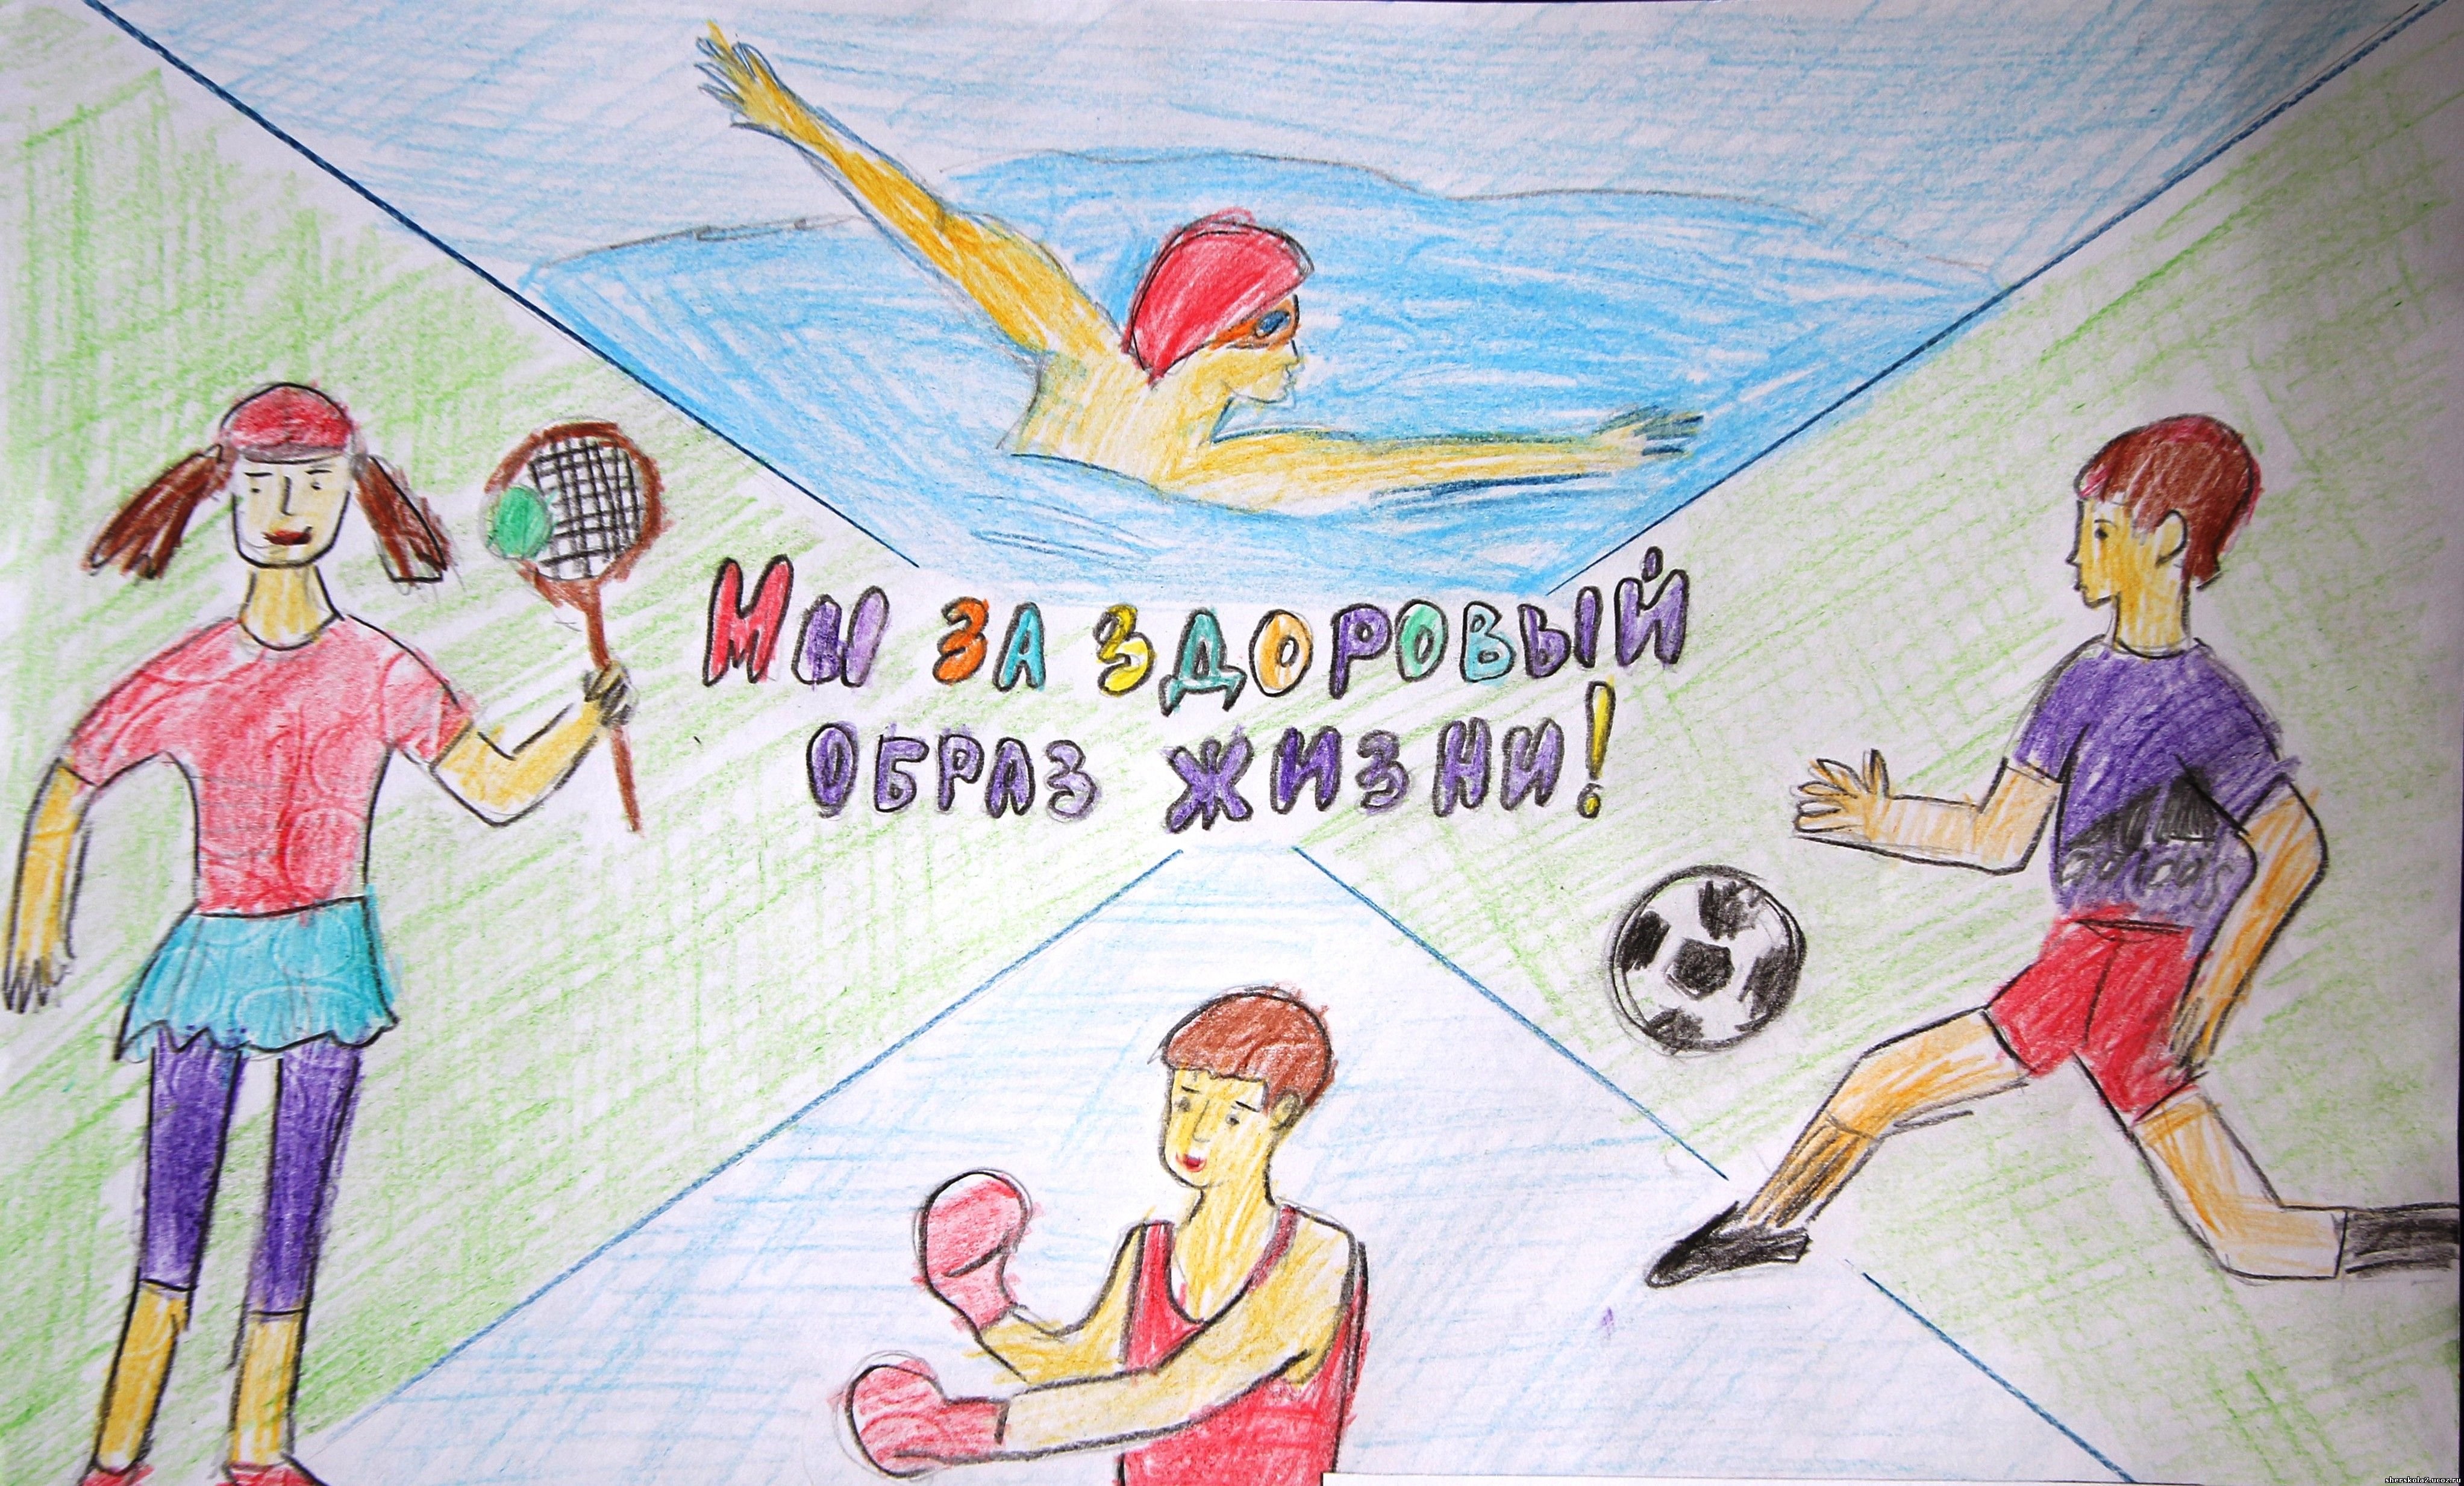 Мы за здоровый
образ жизни!
adidas
sherskola2.ucoz.ru